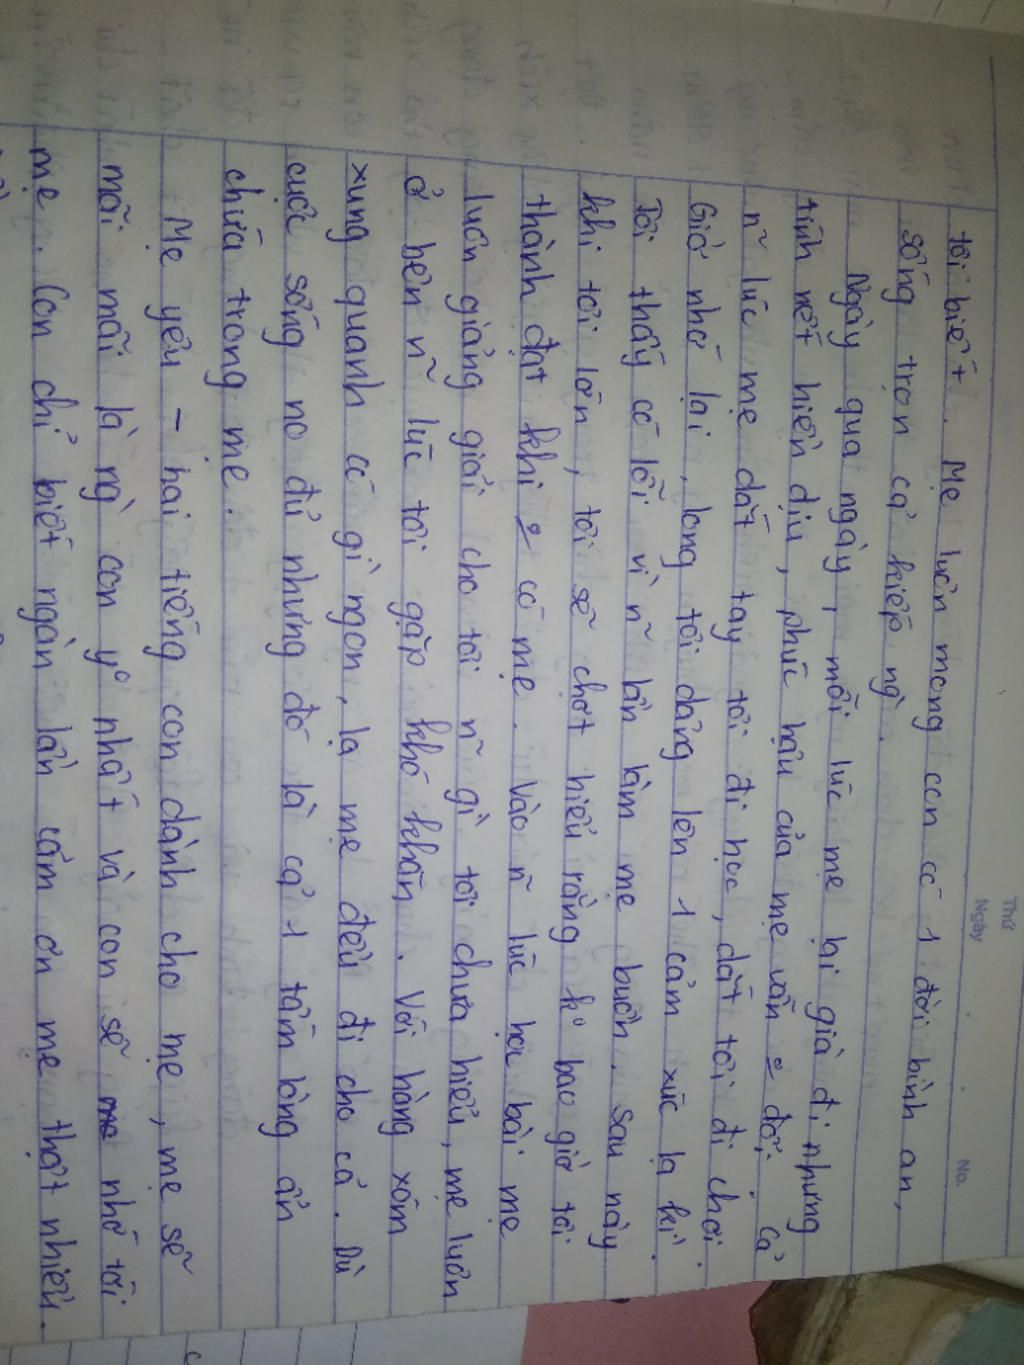 Thứ
Ngày
No.
tôi biết. Mẹ luôn mong con có 1 đời bình an,
sống trọn cả kiếp ng̀.
Ngày qua ngày, mỗi lúc mẹ lại già đi nhưng
tính nết hiền dịu, phúc hậu của mẹ vẫn o đổi. Cả
n~ lúc mẹ dắt tay tôi đi học, dắt tôi đi chơi.
Giờ nhớ lại, long tôi dâng lên 1 cảm xúc lạ kì.
Tôi thấy có lỗi vì n~ lần làm mẹ buồn. Sau này
khi tôi lớn, tôi sẽ chợt hiểu rằng ko bao giờ tôi
thành đạt khi o có mẹ. Vào n~ lúc học bài mẹ
luôn giảng giải cho tôi n~ gì tôi chưa hiểu, mẹ luôn
ở bên n~ lúc tôi gặp khó khăn. Với hàng xóm
xung quanh có gì ngon, lạ mẹ đều đi cho cả. Dù
cuộc sống no đủ nhưng đó là cả 1 tấm lòng ẩn
chứa trong mẹ.
Mẹ yêu - hai tiếng con dành cho mẹ, mẹ sẽ
mãi mãi là ng̀ con yo nhất và con sẽ nhớ tới
mẹ. Con chỉ biết ngàn lần cám ơn mẹ thật nhiều.